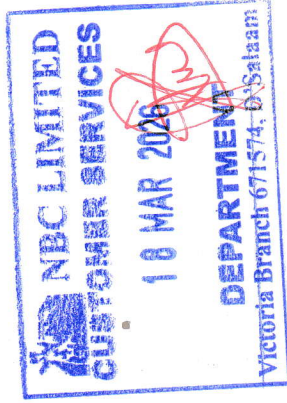 NBC LIMITED
CUSTOMER SERVICES
18 MAR 2026
DEPARTMENT
Victoria Branch 671574, D'Salaam